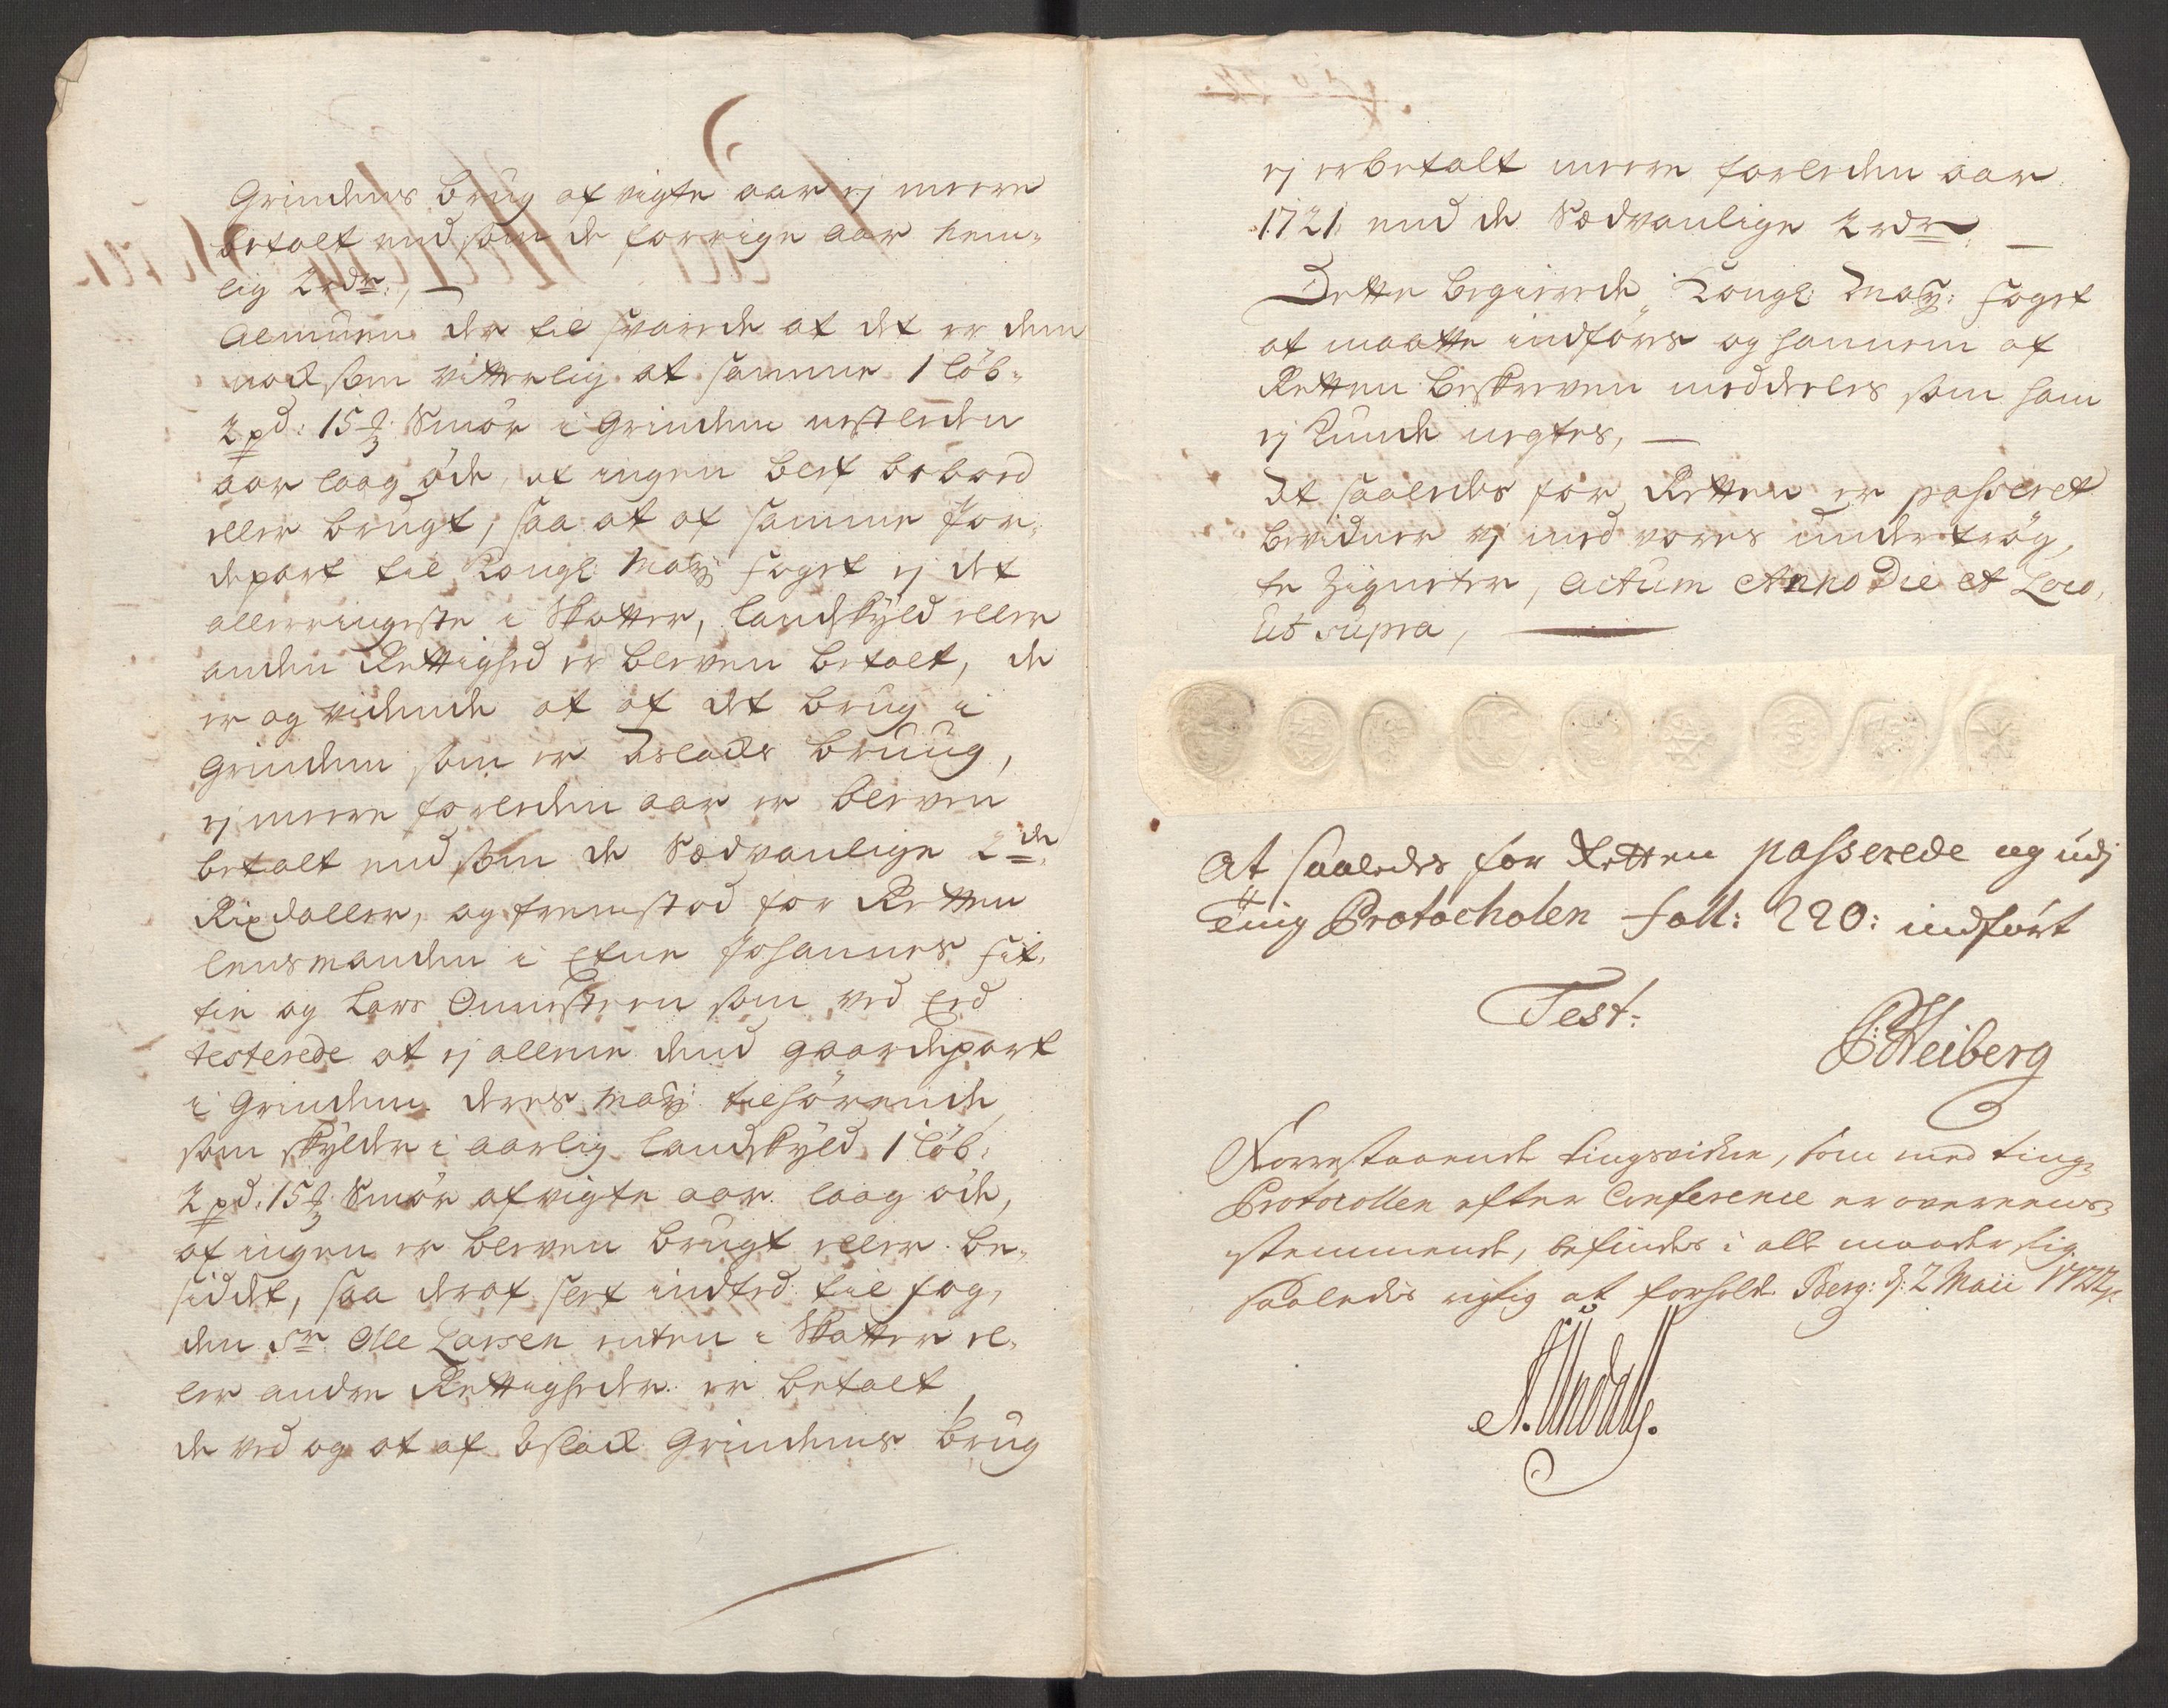 Grindens brug afvigte aar ej meere
betalt end som de forrige aar nem¬
lig 2 rdr:, —
Almuen der til svarede at det er dem
nock som vitterlig at samme 1 løb:
2 pd: 15 ℔ Smør i Grinden nestleden
aar laag øde, at ingen blef beboed
eller brugt, saa at af samme Jor¬
depart til Kongl: May: foget ej det
allerringeste i Skatter, landskyld eller
anden Rettighed er bleven betalt, de
er og vidende at af det brug i
Grinden som er Aslacks bruug,
ej meere forleden aar er bleven
betalt end som de Sædvanlige 2de
Rixdaller, og fremstod for Retten
lensmanden i Etne Johannes Fit¬
tie og Lars Önnesteen som ved Eed
testerede at ej allene dend gaardepart
i Grinden deres May: tilhørende
som skylder i aarlig landskyld 1 løb:
2 pd: 15 ℔ Smør afvigte aar laag øde,
af ingen er bleven brugt eller be¬
siddet, saa deraf slet indted til fog¬
den Sr. Olle Larsen enten i Skatter el¬
ler andre Rettigheder er betalt,
de ved og at af Aslack Grindens brug
ej er betalt meere forleden aar
1721 end de Sædvanlige 2 rdr: —
Dette begierede Kongl: May: foget
at maatte indføres og hannem af
Retten beskreven meddeeles som ham
ej kunde negtes, —
At saaledes for Retten er passeret
bevidner vj med vores undertrøg¬
te Zigneter, Actum Anno Die et Loco,
Ut supra,
At saaledes for Retten passerede og udj
Ting Protocholen foll: 220: indført
Test:
Heiberg
Forrestaaende tingsvidne, som med ting¬
Protocollen efter Conference er overeens¬
stemmende, befindes i alle maader sig
saaledes rigtig at forholde. Berg: d: 2 Maii 1722